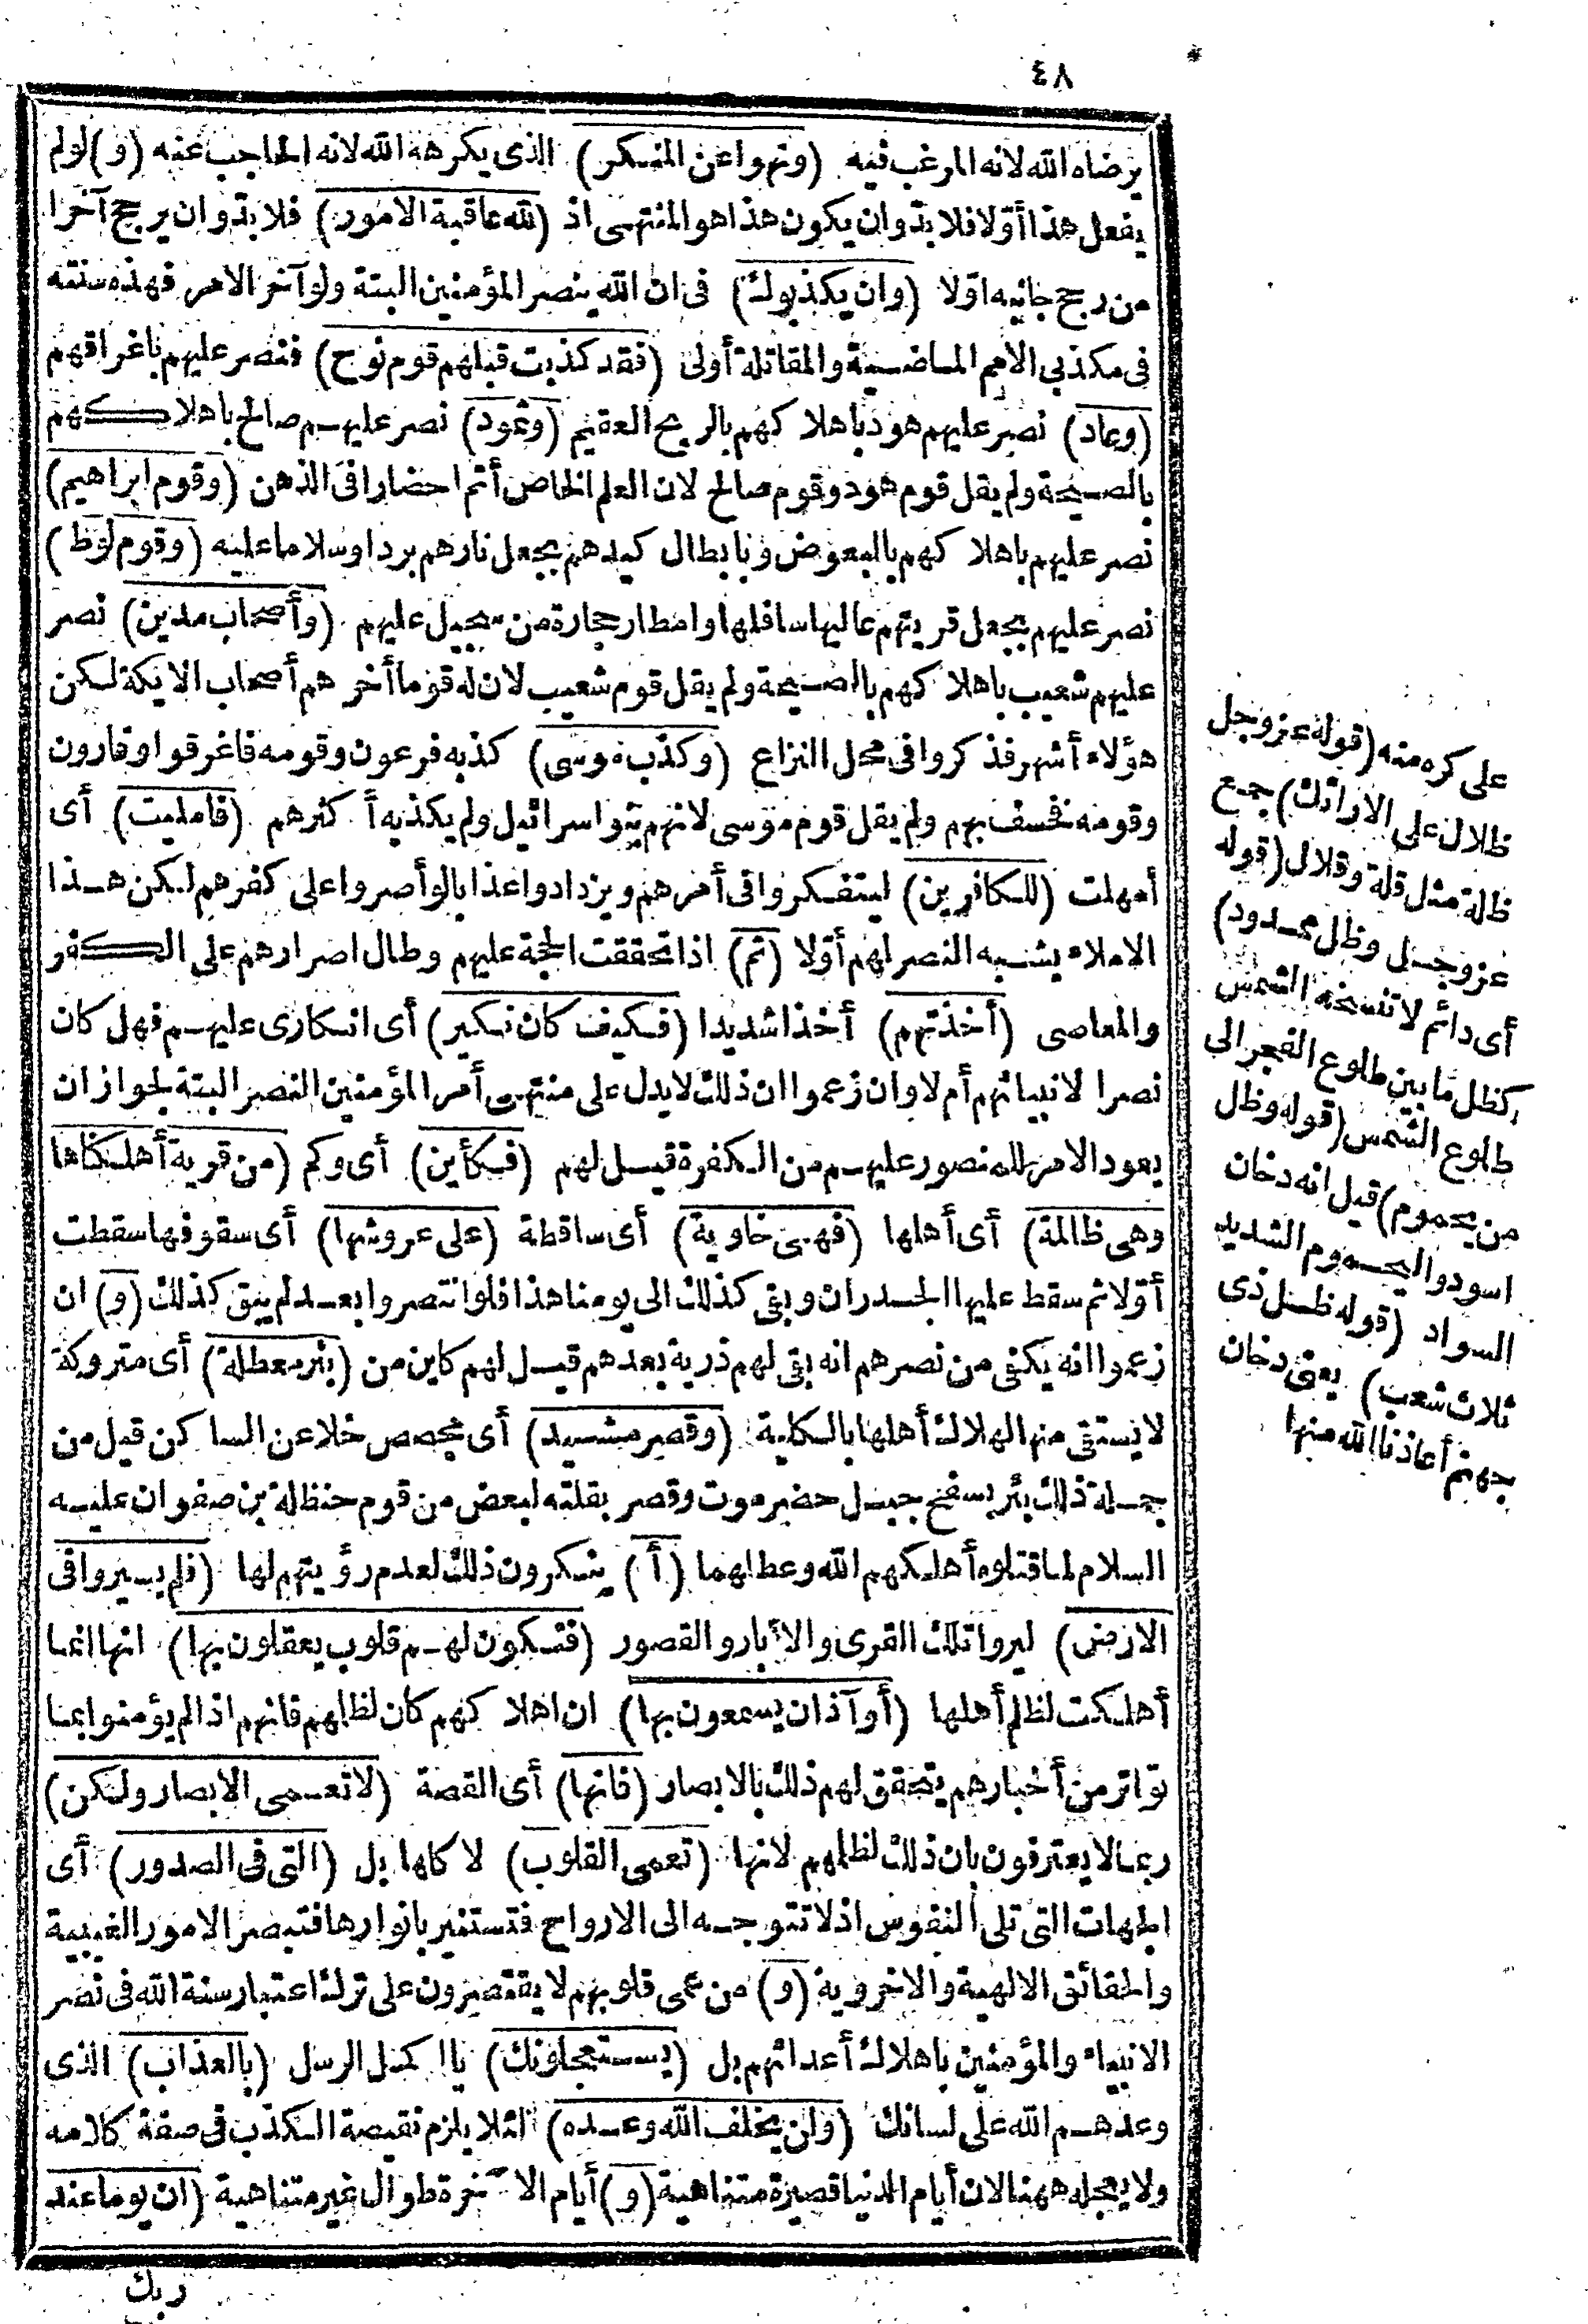 ٤٨
يرضاه الله لانه المرغب فيه (ونهوا عن المنكر) الذى يكرهه الله لانه الحاجب عنه (و) لولم
يفعل هذا أوّلا فلا بدّ وان يكون هذا هو المنتهى اذ (لله عاقبة الامور) فلا بدّ وان يرجح آخرا
من رجح جانبه اوّلا (وان يكذبوك) فى ان الله ينصر المؤمنين البتة ولو آخر الامر فهذه سنته
فى مكذبى الامم الماضية والمقاتلة أولى (فقد كذبت قبلهم قوم نوح) فنصر عليهم باغراقهم
(وعاد) نصر عليهم هود باهلاكهم بالريح العقيم (وثمود) نصر عليهم صالح باهلاكهم
بالصيحة ولم يقل قوم هود وقوم صالح لان العلم الخاص أتم احضارا فى الذهن (وقوم ابراهيم)
نصر عليهم باهلاكهم بالبعوض وبابطال كيدهم بجعل نارهم بردا وسلاما عليه (وقوم لوط)
نصر عليهم بجعل قريتهم عاليها سافلها وامطار حجارة من سجيل عليهم (وأصحاب مدين) نصر
عليهم شعيب باهلاكهم بالصيحة ولم يقل قوم شعيب لان له قوما أخر هم أصحاب الايكة لكن
هؤلاء أشهر فذكروا فى محل النزاع (وكذب موسى) كذبه فرعون وقومه فاغرقوا وقارون
وقومه فخسف بهم ولم يقل قوم موسى لانهم بنو اسرائيل ولم يكذبه أكثرهم (فامليت) أى
أمهلت (للكافرين) ليتفكروا فى أمرهم ويزدادوا عذابا لو أصروا على كفرهم لكن هذا
الاملاء يشبه النصر لهم أوّلا (ثم) اذا تحققت الحجة عليهم وطال اصرارهم على الكفر
والمعاصى (أخذتهم) أخذا شديدا (فكيف كان نكير) أى انكارى عليهم فهل كان
نصرا لانبيائهم أم لا وان زعموا ان ذلك لا يدل على منتهى أمر المؤمنين النصر البتة لجواز ان
يعود الامر للمنصور عليهم من الكفرة قيل لهم (فكأين) أى وكم (من قرية أهلكناها
وهى ظالمة) أى أهلها (فهى خاوية) أى ساقطة (على عروشها) أى سقوفها سقطت
أوّلا ثم سقط عليها الجدران وبقى كذلك الى يومنا هذا فلو انتصروا بعد لم يبق كذلك (و) ان
زعموا انه يكفى من نصرهم انه بقى لهم ذرية بعدهم قيل لهم كاين من (بئر معطلة) أى متروكة
لا يستقى منها الهلاك أهلها بالكلية (وقصر مشيد) أى مجصص خلا عن الساكن قيل من
جملة ذلك بئر بسفح جبل حضرموت وقصر بقلته لبعض من قوم حنظلة بن صفوان عليه
السلام لما قتلوه أهلكهم الله وعطلهما (أ) ينكرون ذلك لعدم رؤيتهم لها (فلم يسيروا فى
الارض) ليروا تلك القرى والآبار والقصور (فتكون لهم قلوب يعقلون بها) انها انما
أهلكت لظلم أهلها (أو آذان يسمعون بها) ان اهلاكهم كان لظلمهم فانهم اذا لم يؤمنوا بما
تواتر من أخبارهم يتحقق لهم ذلك بالابصار (فانها) أى القصة (لا تعمى الابصار ولكن)
ربما لا يعترفون بان ذلك لظلمهم لانها (تعمى القلوب) لا كلها بل (التى فى الصدور) أى
الجهات التى تلى النفوس اذ لا تتوجه الى الارواح فتستنير بانوارها فتبصر الامور الغيبية
والحقائق الالهية والاخروية (و) من عمى قلوبهم لا يقتصرون على ترك اعتبار سنة الله فى نصر
الانبياء والمؤمنين باهلاك أعدائهم بل (يستعجلونك) يا اكمل الرسل (بالعذاب) الذى
وعدهم الله على لسانك (ولن يخلف الله وعده) لئلا يلزم نقيصة الكذب فى صفة كلامه
ولا يعجله ههنا لان أيام الدنيا قصيرة متناهية (و) أيام الآخرة طوال غير متناهية (ان يوما عند
ربك
على كره منه (قوله عز وجل
ظلال على الارائك) جمع
ظلة مثل قلة وقلال (قوله
عز وجل وظل ممدود)
أى دائم لا تنسخه الشمس
كظل ما بين طلوع الفجر الى
طلوع الشمس (قوله وظل
من يحموم) قيل انه دخان
اسود واليحموم الشديد
السواد (قوله ظل ذى
ثلاث شعب) يعنى دخان
جهنم أعاذنا الله منها